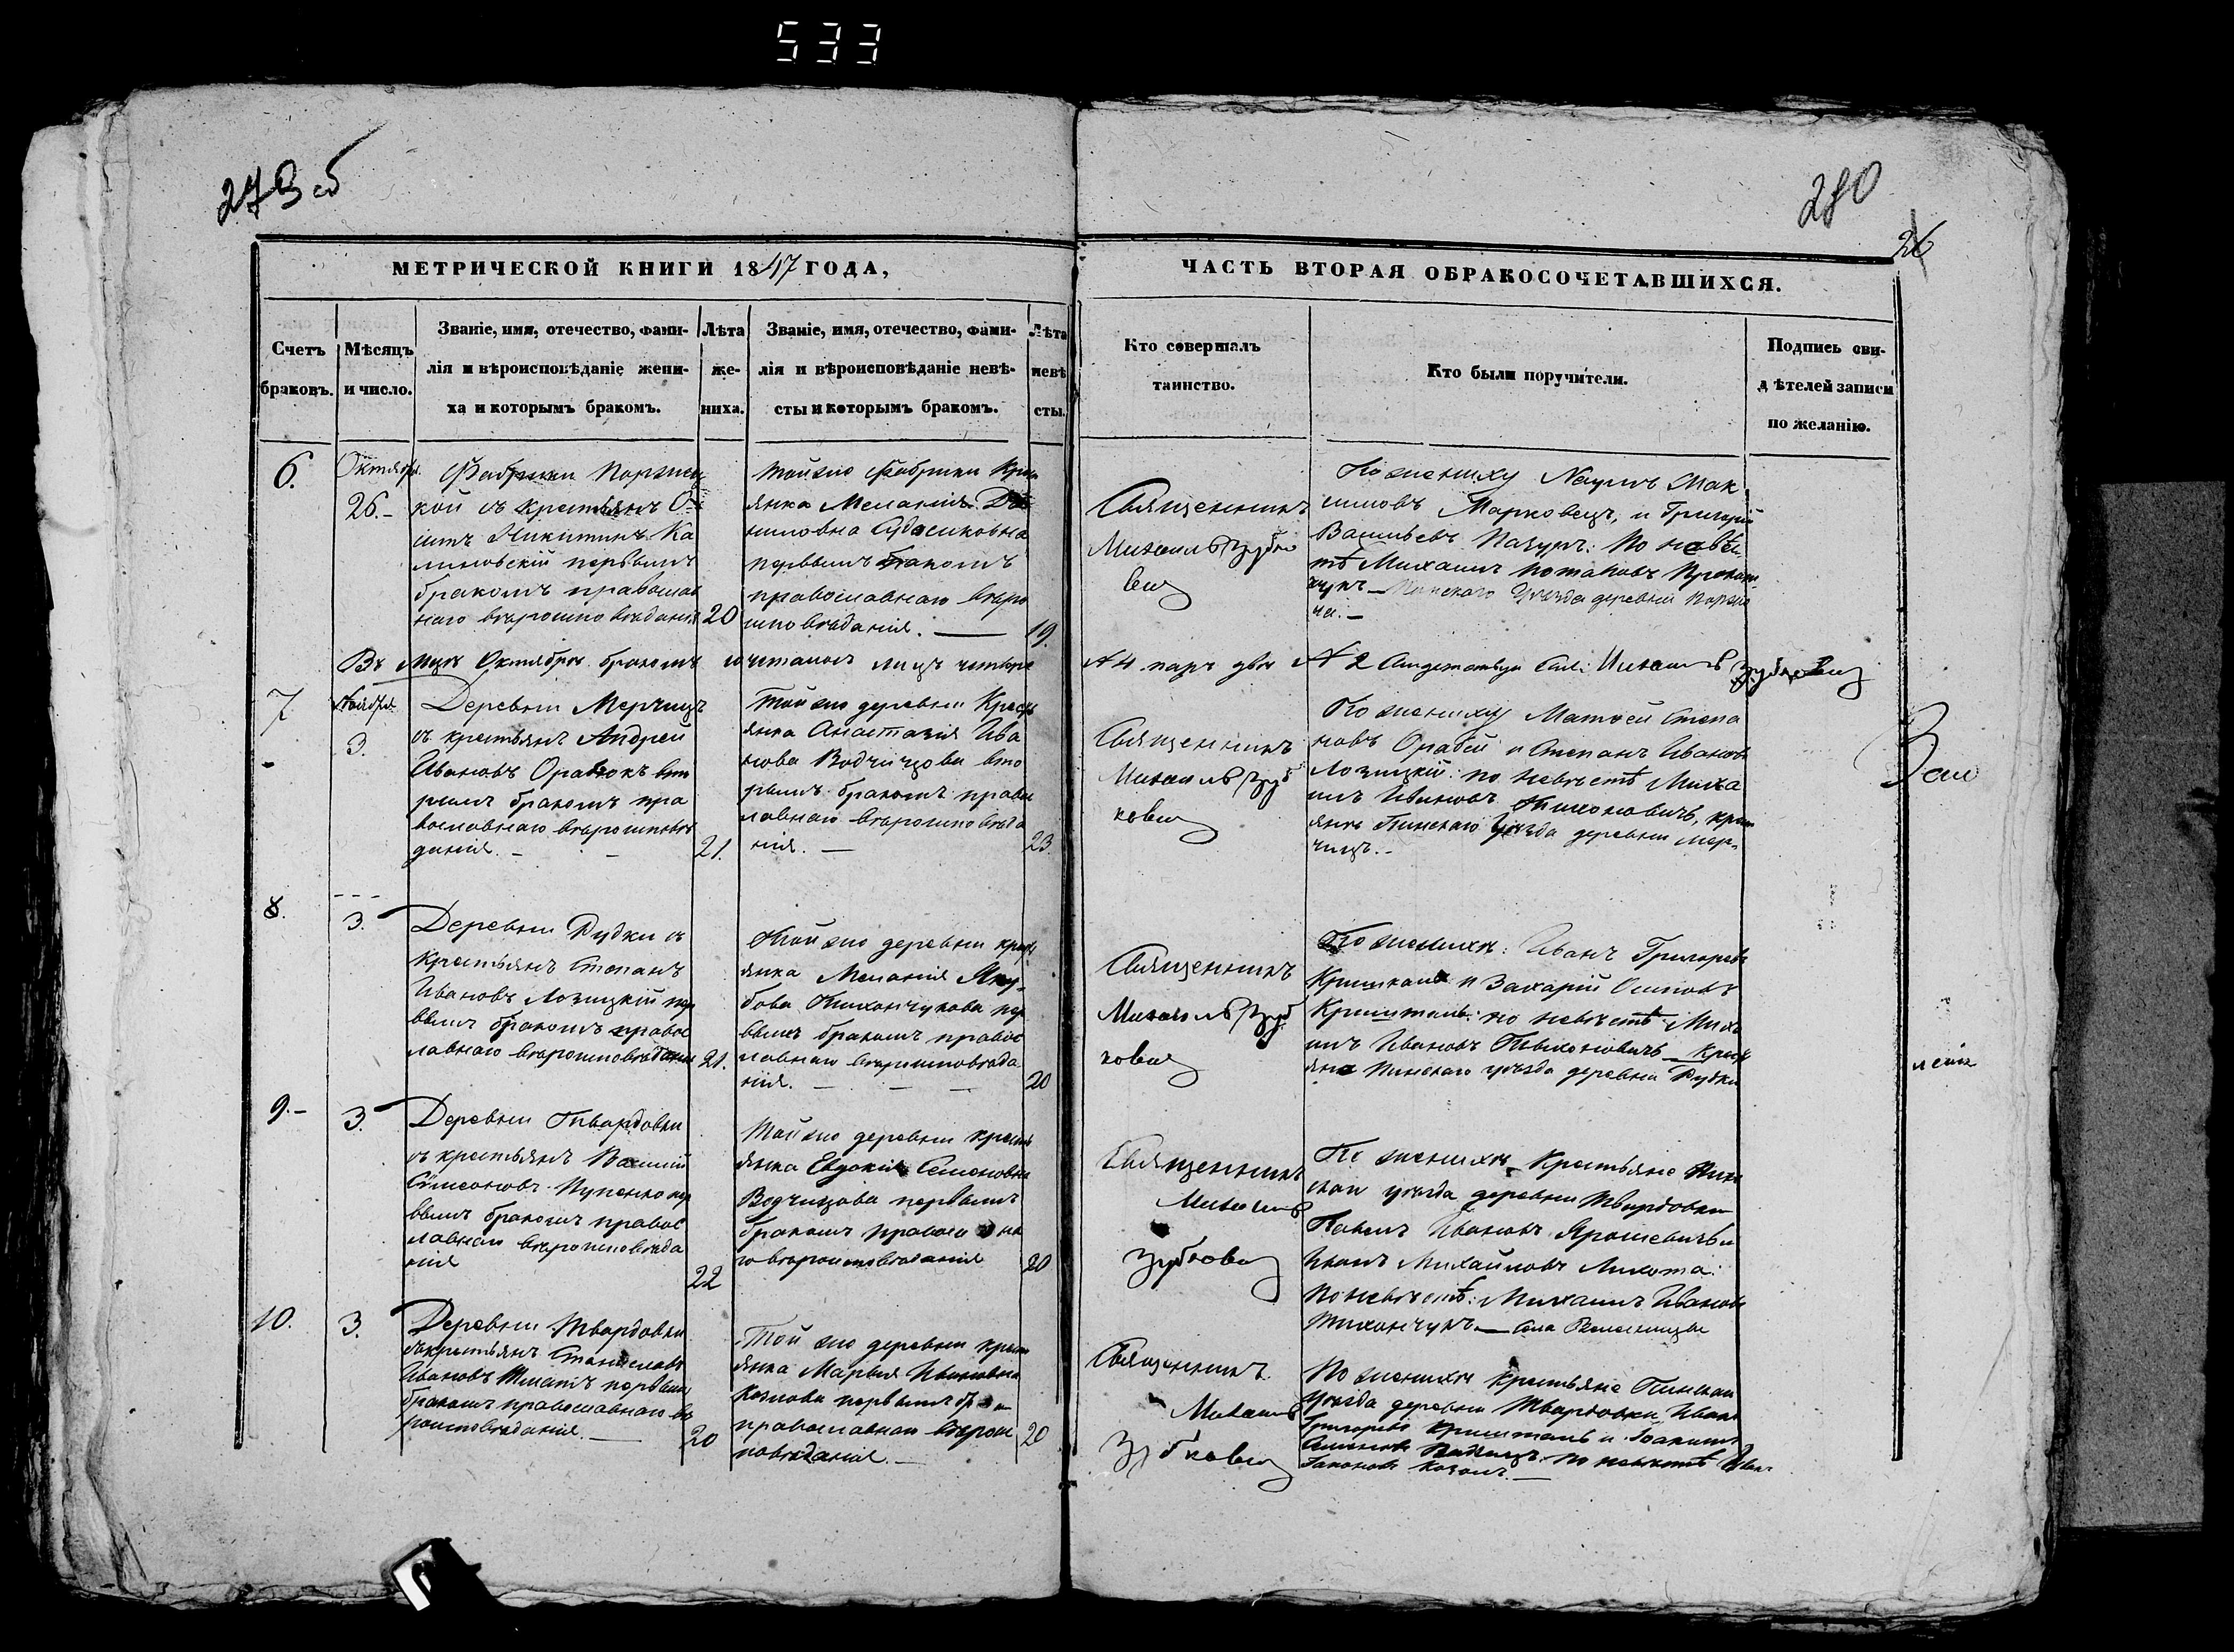 533
279 об
280
26
МЕТРИЧЕСКОЙ КНИГИ 1847 ГОДА,
Счетъ
браковъ.
Мѣсяцъ
и число.
Званіе, имя, отечество, фами-
лія и вѣроисповѣданіе жени-
ха и которымъ бракомъ.
Лѣта
же-
ниха.
Званіе, имя, отечество, фами-
лія и вѣроисповѣданіе невѣ-
сты и которымъ бракомъ.
Лѣта
невѣ
сты.
ЧАСТЬ ВТОРАЯ ОБРАКОСОЧЕТАВШИХСЯ.
Кто совершалъ
таинство.
Кто были поручители.
Подпись сви-
дѣтелей записи
по желанію.
6.
Октября
26.-
Фабрики
кой съ крестьянъ
Никитинъ Ка
линовскій первымъ
бракомъ православ
наго вѣроисповѣданія
20
Той же фабрики
янка Меланія
первымъ бракомъ
православнаго вѣро
исповѣданія.
19.
Священникъ
Михаилъ Зубко
вич
По жениху Наумъ Мак
симовъ Марковецъ, и Григорій
Васильевъ Пазунъ: По невѣс
тѣ Михаилъ Потаповъ
Пинскаго Уѣзда деревни
ча.-
Въ мцѣ Октябрѣ бракомъ сочетаномъ лицъ четыре
№ 4 паръ двѣ № 2 Михаилъ Зубкович
7
Ноября
3.
Деревни Мерчицъ
съ крестьянъ Андрей
Ивановъ вто
рымъ бракомъ пра
вославнаго вѣроисповѣ
данія.-
21.
Той же деревни Кресть
янка Анастазія Ива
нова Водчицова вто
рымъ бракомъ правос
лавнаго вѣроисповѣда
нія.
23.
Священникъ
Михаилъ Зуб
кович
По жениху Матвей Степа
новъ и Степанъ Ивановъ
Лозицкій: по невѣстѣ Миха
илъ Ивановъ Тихоновичъ, крест
яне Пинскаго Уѣзда деревни Мер-
чицъ.-
8.
3.
Деревни Рудки съ
крестьянъ Степанъ
Ивановъ Лозицкій пер
вымъ бракомъ правос
лавнаго вѣроисповѣданія
21.
Той же деревни крест
янка Меланія Яку-
бова Тихончукова пер
вымъ бракомъ правос
лавнаго вѣроисповѣда
нія.
20
Священникъ
Михаилъ Зуб
кович
По женихѣ: Иванъ Григорьевъ
и Захарій Осиповъ
по невѣстѣ Миха
илъ Ивановъ Тихоновичъ Крест
яне Пинскаго уѣзда деревни Рудки
9.-
3.
Деревни Твардовки
съ крестьянъ Василій
Симеоновъ Пупенко пер
вымъ бракомъ правос
лавнаго вѣроисповѣда
нія
22
Той же деревни кресть
янка Евдокія Семеновна
Водчицова первымъ
бракомъ
го вѣроисповѣданія
20
Священникъ
Михаилъ
Зубкович
По женихѣ Крестьяне Пин
скаго уѣзда деревни Твардовки
Павелъ Ивановъ Ярошевичъ и
Иванъ Михайловъ Лихота:
По невѣстѣ: Михаилъ Ивановъ
Тихончукъ. села
10.
3.
Деревни Твардовки
съ крестьянъ Станиславъ
Ивановъ первымъ
бракомъ православнаго вѣ
роисповѣданія.
20
Той же деревни крест
янка Марья Ивановна
Козлова первымъ
православнаго вѣроис
повѣданія.-
20
Священникъ
Михаилъ
Зубкович
По женихѣ крестьяне Пинскаго
Уѣзда деревни Твардовки Иванъ
Григорьевъ и Іоакимъ
Семеновъ по невѣстѣ Иванъ